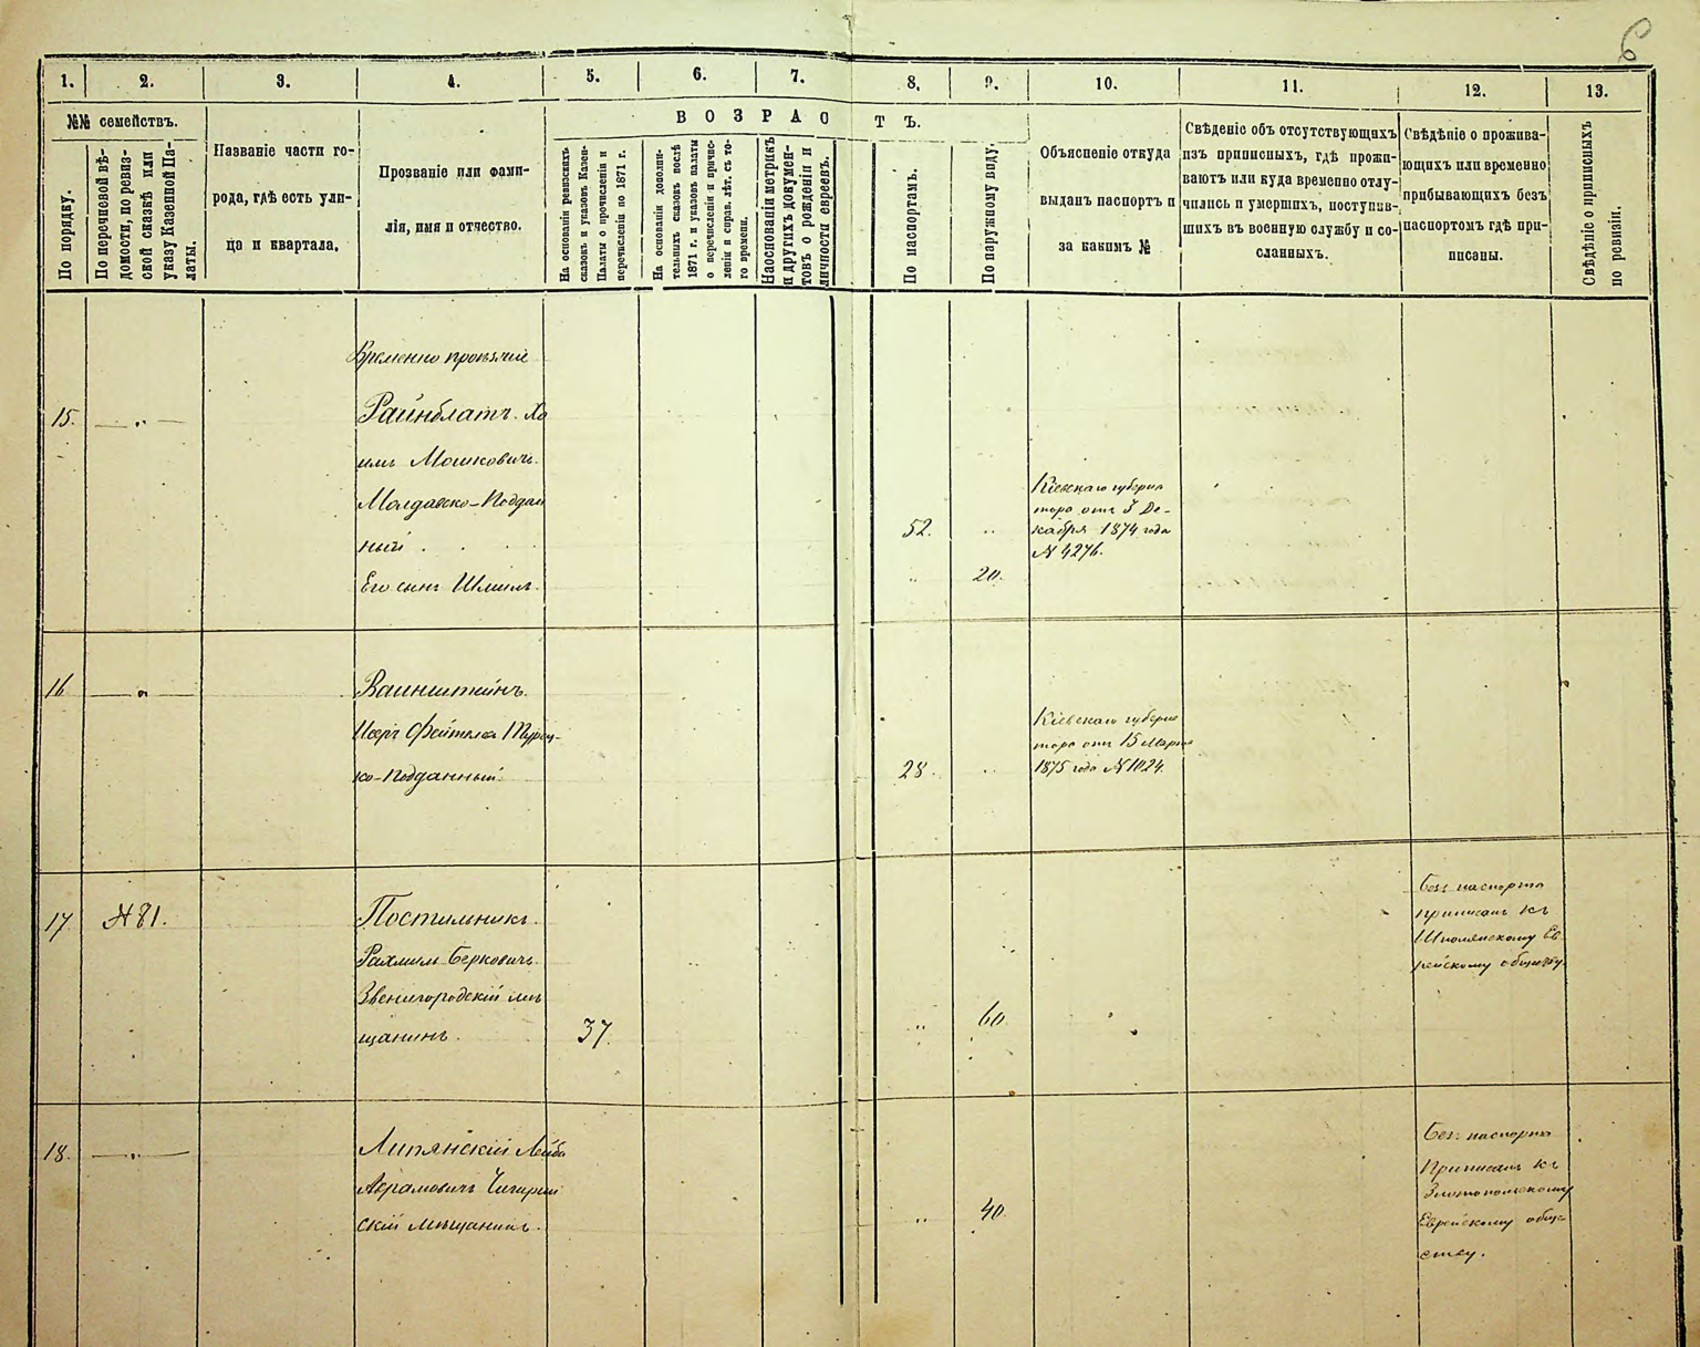 6
1. 2. 3. 4. 5. 6. 7. 8. 9. 10. 11. 12. 13.
№№ семействъ.
По порядку.
По перечневой вѣ-
домости, по ревиз-
ской сказкѣ или
указу Казенной Па-
латы.
Названіе части го-
рода, гдѣ есть ули-
ца и квартала.
Прозваніе или фами-
лія, имя и отчество.
ВОЗРАСТЪ.
На основаніи ревизскихъ
сказокъ и указовъ Казен-
Палаты о прочисленіи и
перечисленіи по 1871 г.
На основаніи дополни-
тельныхъ сказокъ послѣ
1871 г. и указовъ палаты
о перечисленіи и причис-
леніи и справ. лѣт. съ то-
го времени.
Наоснованіи метрикъ
и другихъ докумен-
товъ о рожденіи и
личности евреевъ.
По паспортамъ.
По наружному виду.
Объясненіе откуда
выданъ паспортъ и
за какимъ №
Свѣденіе объ отсутствующихъ
изъ приписныхъ, гдѣ прожи-
ваютъ или куда временно отлу-
чились и умершихъ, поступив-
шихъ въ военную службу и со-
сланныхъ.
Свѣдѣніе о прожива-
ющихъ или временно
прибывающихъ безъ
паспортомъ гдѣ при-
писаны.
Свѣдѣніе о приписныхъ
по ревизіи.
Временно
15. — „ — Райнблатъ Ха
имъ Мошковичъ.
Молдавско-Поддан
ный . . . 52. „
Его сынъ Шмиль. „ 20.
Кіевскаго губерна
тора отъ 3 Де-
кабря 1874 года
№ 4276.
16 — „ — Ваинштейнъ.
Фейтелев Турец-
ко-Подданный. 28. „
Кіевскаго губерна
тора отъ 15 Марта
1875 года № 1024.
17 №81. Постильникъ.
Рахмиль Берковичъ.
Звенигородскій мѣ
щанинъ. 37. „ 60
Безъ паспорта
приписанъ къ
Шполянскому Ев
рейскому обществу.
18. — „ — Липянскій Лейба
Абрамовичъ Чигирин
скій мѣщанинъ. „ 40.
Безъ паспорта
Приписанъ къ
Златопольскому
Еврейскому обще
ству.